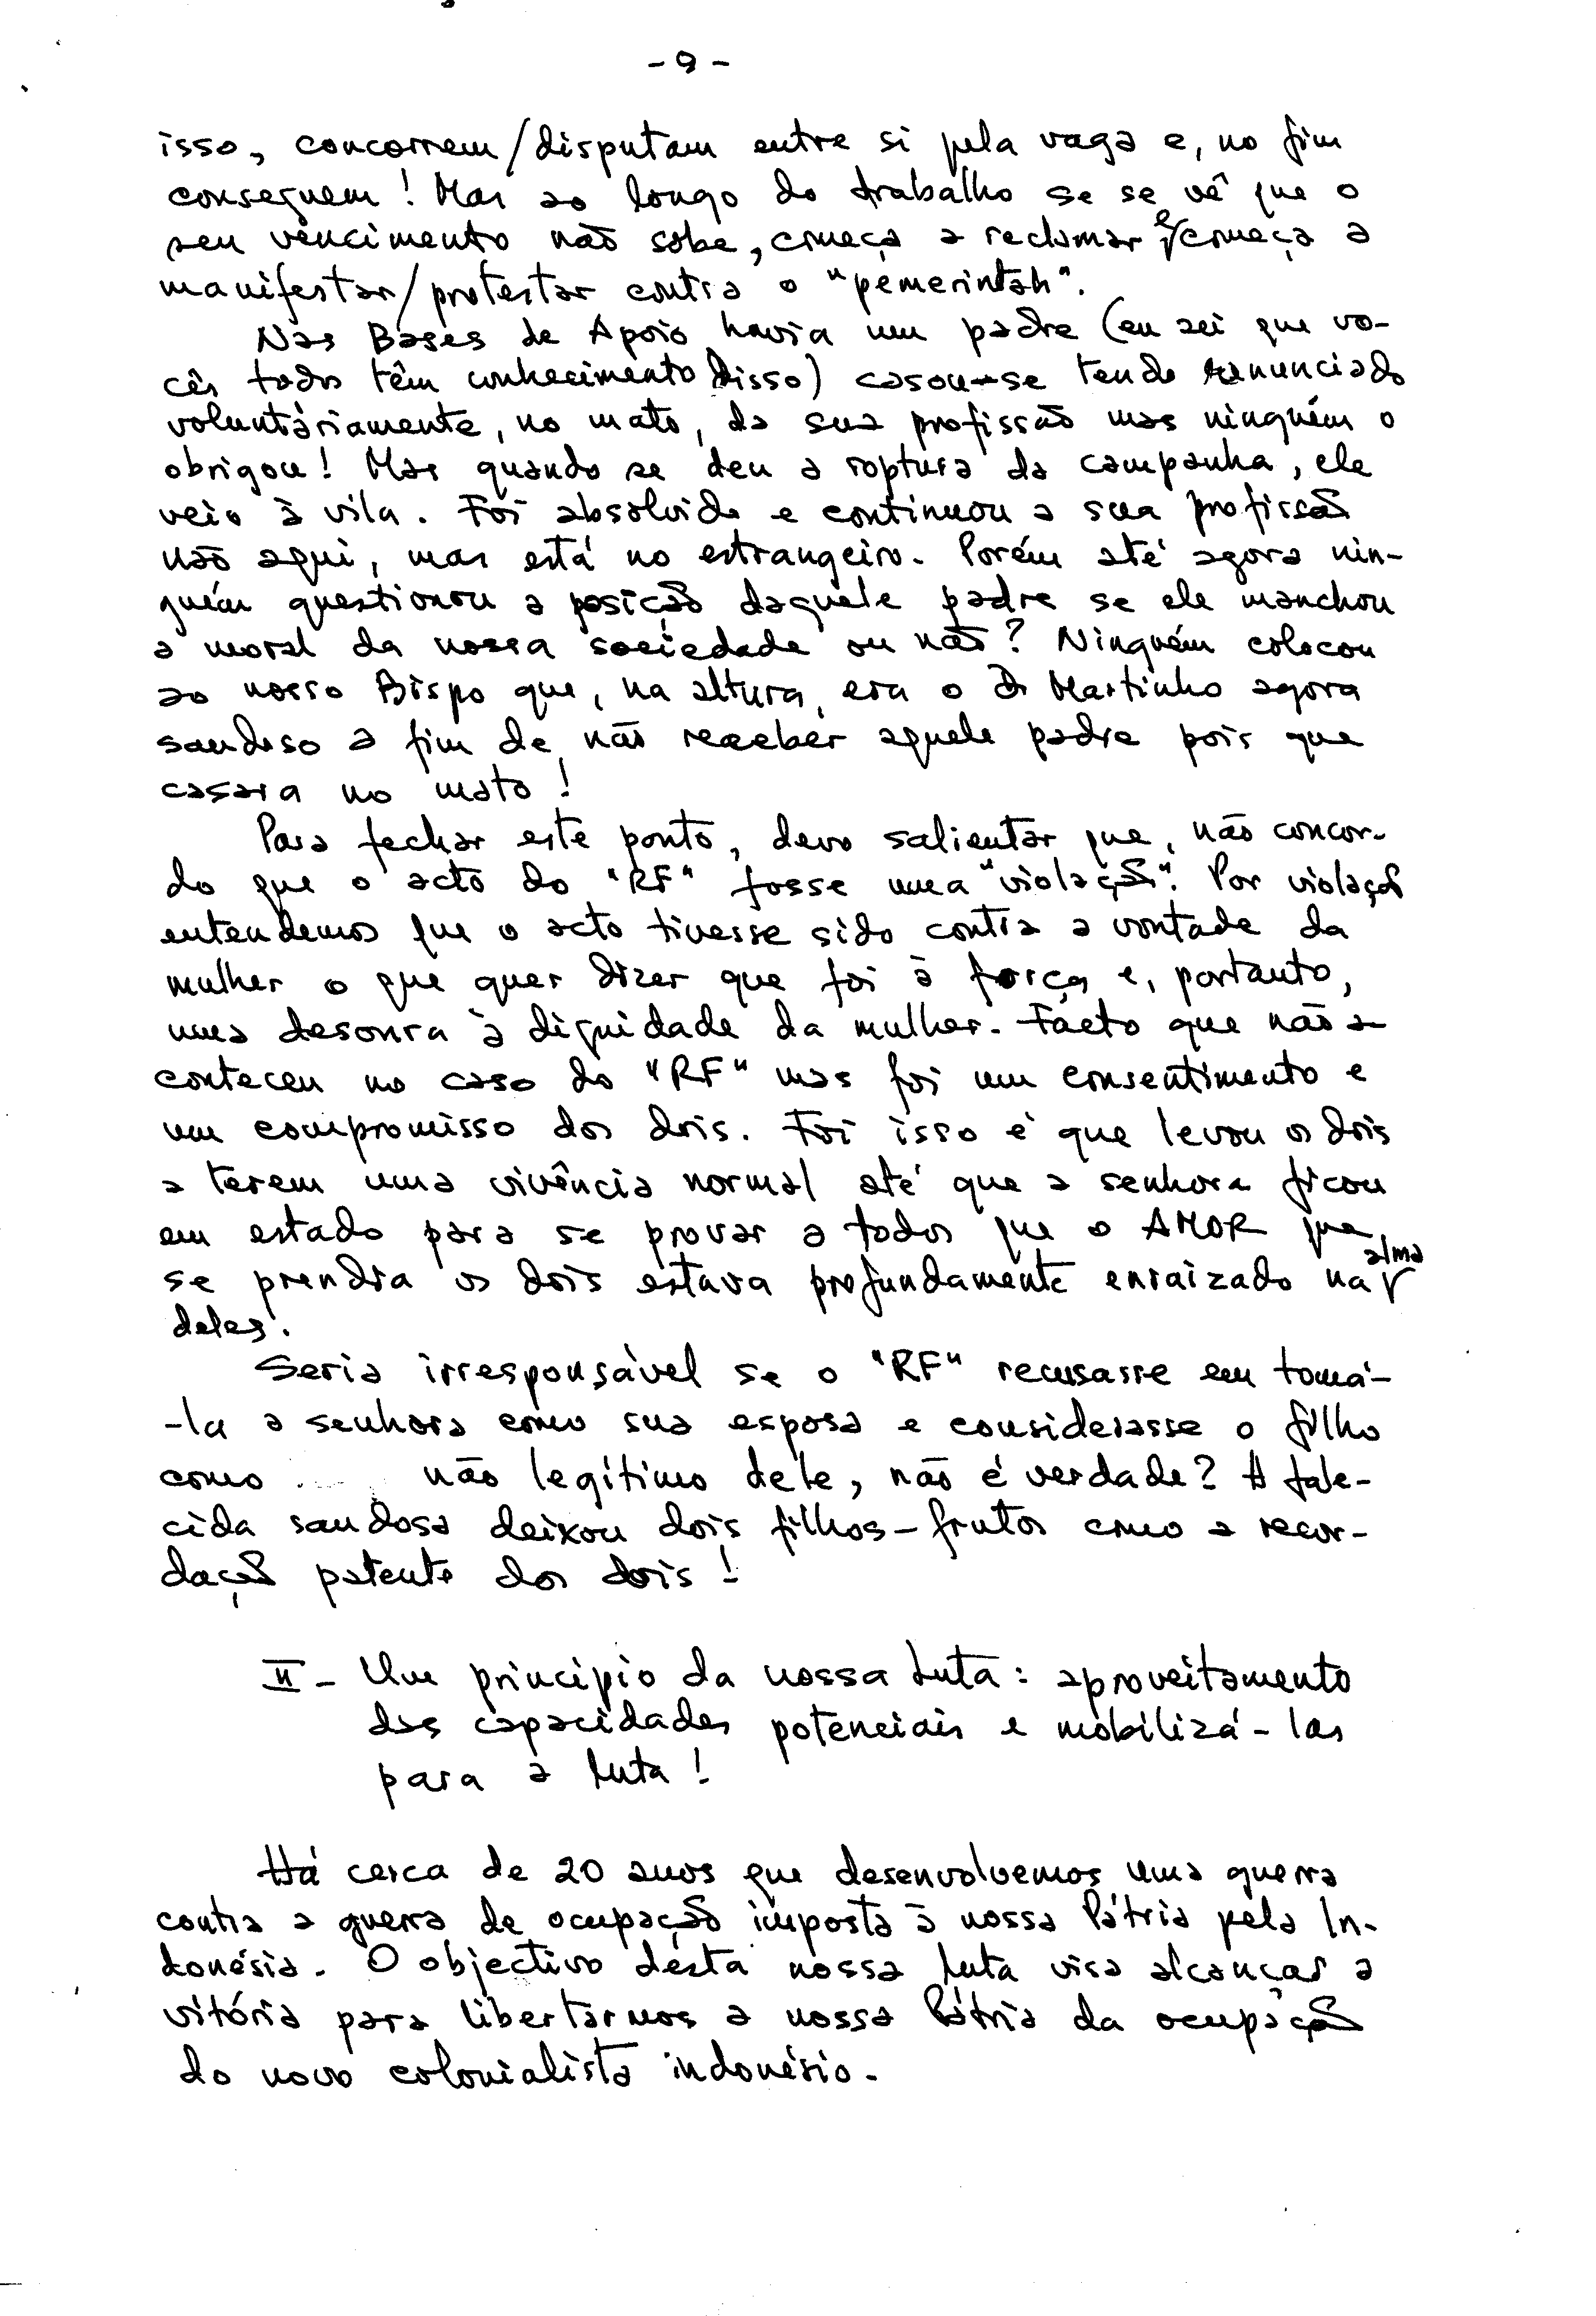 - 9 -
isso, concorrem/disputam entre si pela vaga e, no fim
conseguem! Mas ao longo do trabalho se se vê que o
seu vencimento não sobe, começa a reclamar e/começa a
manifestar/protestar contra o "pemerintah".
Nas Bases de Apoio havia um padre (eu sei que vo-
cês todos têm conhecimento disso) casou-se tendo renunciado
voluntàriamente, no mato, da sua profissão mas ninguém o
obrigou! Mas quando se deu a roptura da campanha, ele
veio à vila. Foi absolvido e continuou a sua profissão
não aqui, mas está no estrangeiro. Porém até agora nin-
guém questionou a posição daquele padre se ele manchou
a moral da nossa sociedade ou não? Ninguém colocou
ao nosso Bispo que, na altura, era o D. Martinho agora
saudoso a fim de não receber aquele padre pois que
casara no mato!
Para fechar este ponto, devo salientar que, não concor-
do que o acto do "RF" fosse uma "violação". Por violação
entendemos que o acto tivesse sido contra a vontade da
mulher o que quer dizer que foi à força e, portanto,
uma desonra à dignidade da mulher. Facto que não a-
conteceu no caso do "RF" mas foi um consentimento e
um compromisso dos dois. Foi isso é que levou os dois
a terem uma vivência normal até que a senhora ficou
em estado para se provar a todos que o AMOR que
se prendia os dois estava profundamente enraizado na alma
deles.
Seria irresponsável se o "RF" recusasse em tomá-
-la a senhora como sua esposa e considerasse o filho
como não legítimo dele, não é verdade? A fale-
cida saudosa deixou dois filhos-frutos como a recor-
dação patente dos dois!
II - Um princípio da nossa Luta: aproveitamento
das capacidades potenciais e mobilizá-las
para a Luta!
Há cerca de 20 anos que desenvolvemos uma guerra
contra a guerra de ocupação imposta à nossa Pátria pela In-
donésia. O objectivo desta nossa Luta visa alcançar a
vitória para libertarmos a nossa Pátria da ocupação
do novo colonialista indonésio.